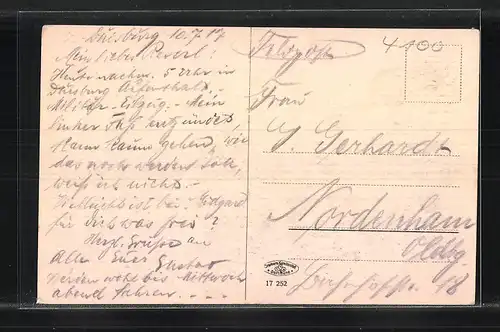 Duisburg 10.7.17
Mein liebes Peserl!
Heute nachm. 5 Uhr in
Duisburg Aufenthalt. -
Militär - - Mein
linker Fuß entzündet
kann kaum gehen, wie
das noch werden soll,
weiß ich nicht. -
Vielleicht ist bei Midgard
für dich was frei?
Herzl. Grüße an
Alle Euer Gustav
Werden wohl bis Mittwoch
abend fahren. - - -
Feldpost
4100
Frau
G. Gerhardt
Nordenham
Oldbg
18
17 252